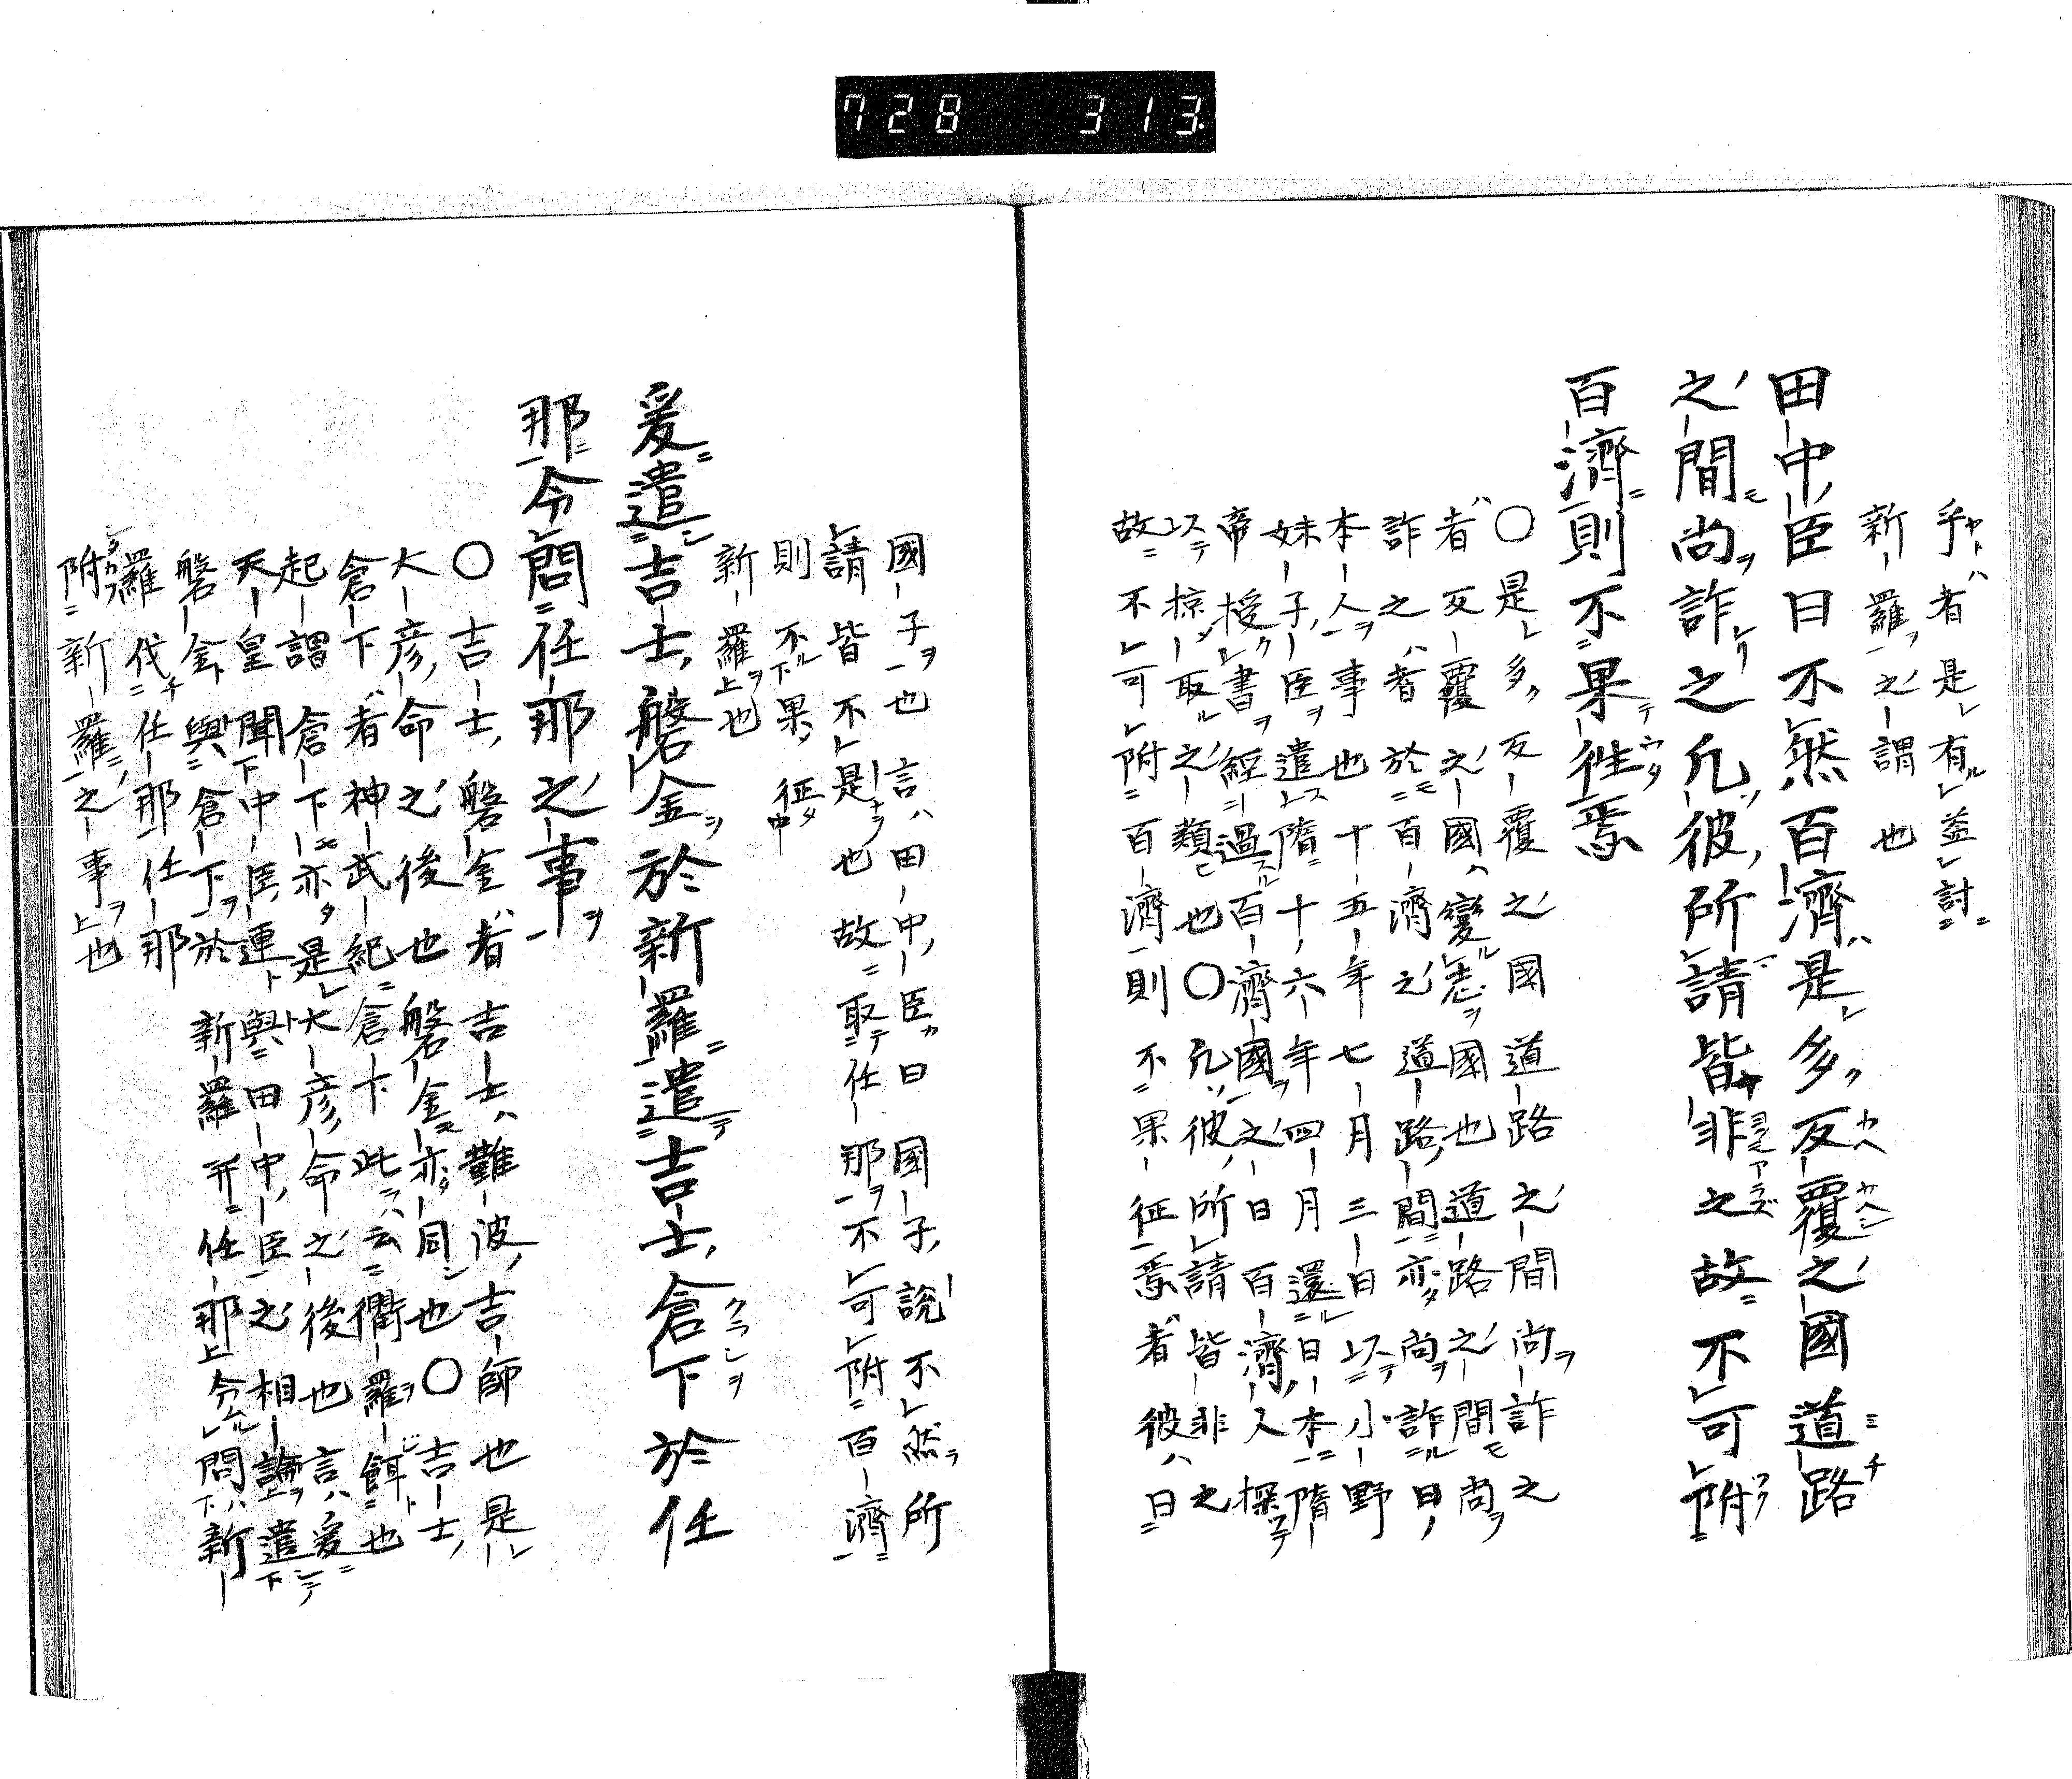 728 313
乎者是有益討
新羅之謂也
田中臣曰不然百濟是多反覆之國道路
之間尚詐之凡彼所請皆非之故不可附
百濟則不果徃焉
○是多反覆之國道路之間尚詐之
者反覆之國變志國也道路之間尚
詐之者於百濟之道路間亦尚詐曰
本人事也十五年七月三日以小野
妹子臣遣隋十六年四月還日本隋
帝授書經過百濟國之日百濟人探
以掠取之類也○凡彼所請皆非之
故不可附百濟則不果征焉者彼曰
國子也言田中臣曰國子說不然所
請皆不是也故取任那不可附百濟
則不果征
新羅也
爰遣吉士磐金於新羅遣吉士倉下於任
那令問任那之事
○吉士磐金者吉士難波吉師也是
大彦命之後也磐金亦同也○吉士
倉下者神武紀倉下此云衢羅餌也
起謂倉下亦是大彦命之後也言爰
天皇聞中臣連與田中臣之相論遣
磐金與倉下於新羅幷任那令問新
羅伐任那任那
附新羅之事也